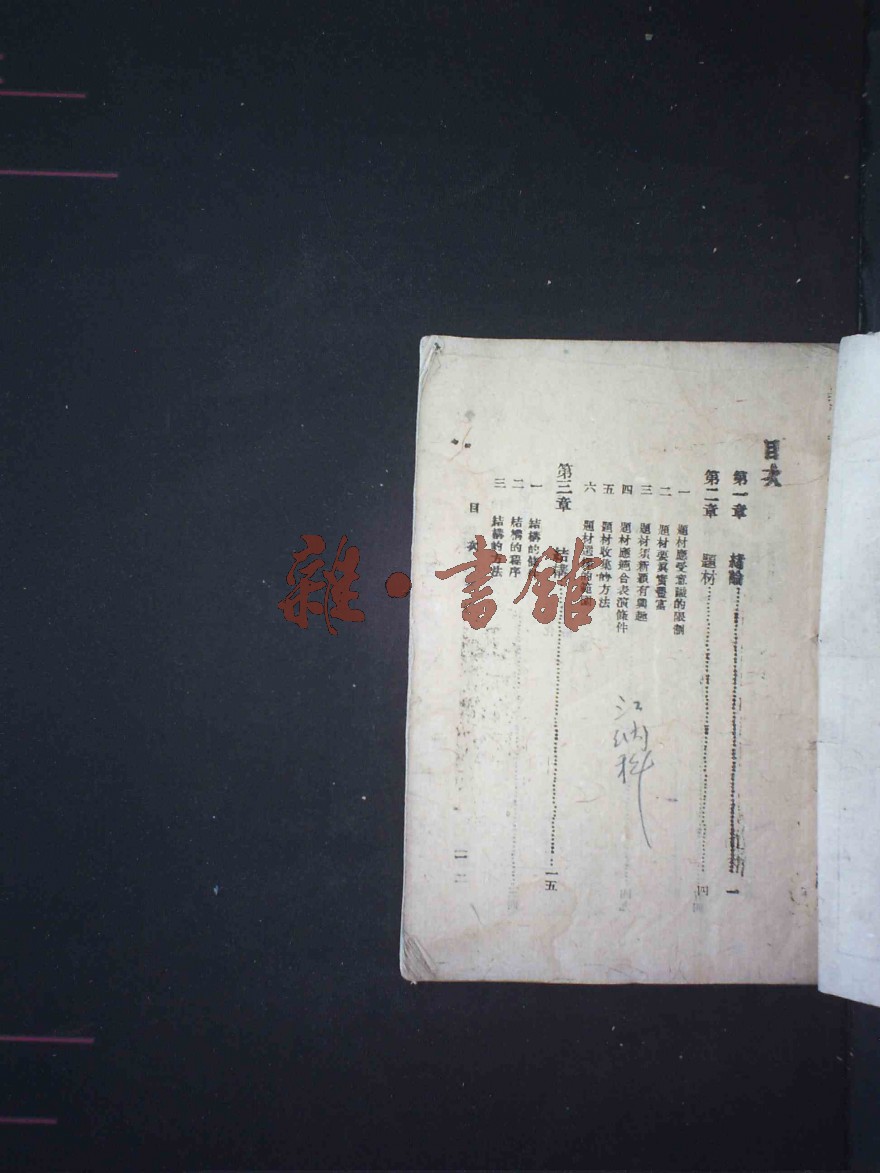 目次
第一章 緒論……一
第二章 題材……四
一 題材應受意識的限制
二 題材要眞實豐富
三 題材須新穎有興趣
四 題材應適合表演條件
五 題材收集的方法
六 題材
第三章 結構……一五
一 結構的
二 結構的程序
三 結構的方法
目次
一
雜·書館